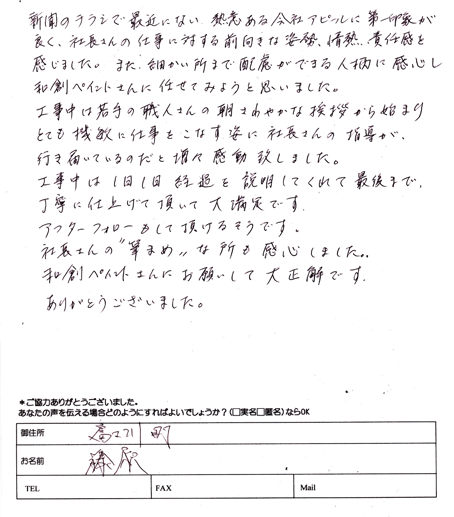 新聞のチラシで最近にない熱意ある会社アピールに第一印象が
良く、社長さんの仕事に対する前向きな姿勢、情熱、責任感を
感じました。また、細かい所まで配慮ができる人柄に感心し
和創ペイントさんに任せてみようと思いました。
工事中は若手の職人さんの朝さわやかな挨拶から始まり
とても機敏に仕事をこなす姿に社長さんの指導が、
行き届いているのだと増々感動致しました。
工事中は1日1日経過を説明してくれて最後まで、
丁寧に仕上げて頂いて大満足です。
アフターフォローもして頂けるそうです。
社長さんの“筆まめ”な所も感心しました。
和創ペイントさんにお願いして大正解です。
ありがとうございました。
*ご協力ありがとうございました。
あなたの声を伝える場合どのようにすればよいでしょうか？(□実名□匿名)ならOK
御住所 町
お名前 藤原
TEL FAX Mail